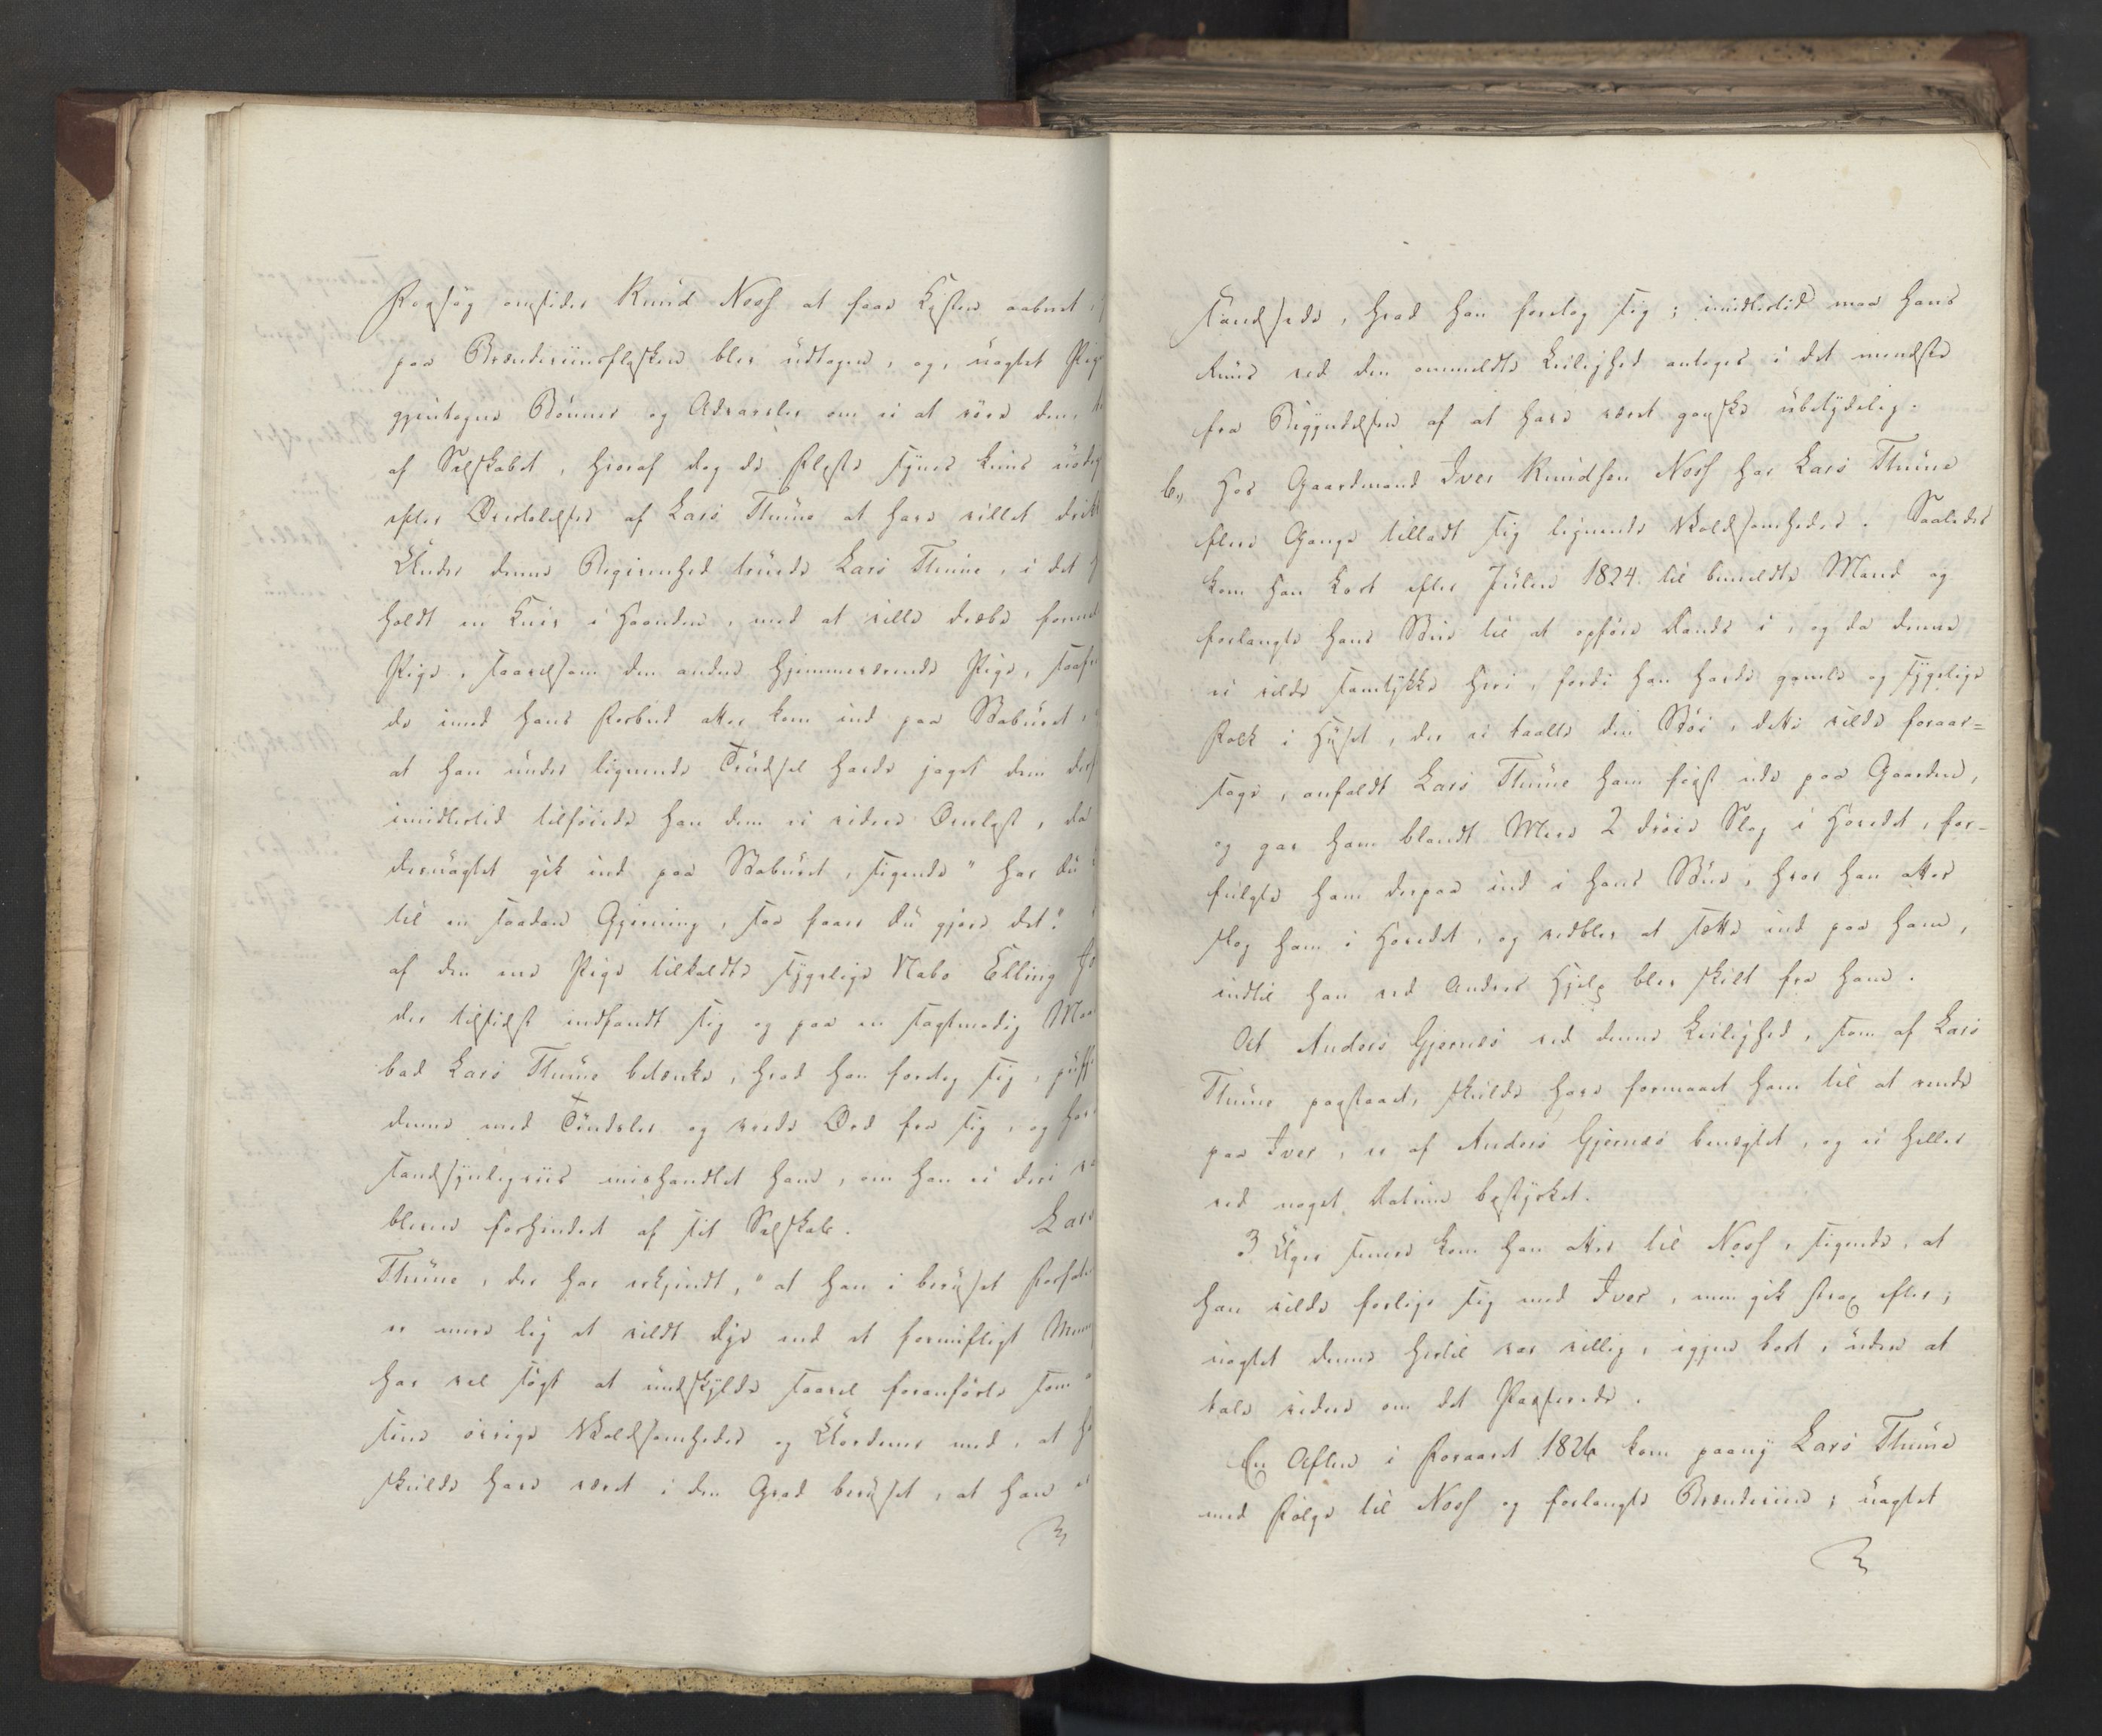 Forsøg omsider Knud Noss at faae Kisten aabnet,
paa Brændeviinsflasken blev udtagen, og, uagtet Pig
gjentagne Bønner og Advarsler om ei at røre den,
af Selskabet, hvoraf dog de fleste synes kuns nødig
efter Overtalelser af Lars Thune at have villet drikk
Under denne Begivenhed truede Lars Thune, i det
holdt en Kniv i Haanden, med at ville dræbe forme
Pige, saavelsom den anden hjemmeværende Pige, saafr
de imod hans Forbud atter kom ind paa Stabuuret,
at han under lignende Trudsel havde jaget dem der
imidlertid tilføiede han dem ei videre Overlast, da
desuagtet gik ind paa Stabuuret, sigende "har du
til en saadan Gjerning, saa faaer du gjøre det".
af den ene Pige tilkaldte sygelige Nabo Elling
der tilsidst indfandt sig og paa en sagtmodig Maa
bad Lars Thune betænke, hvad han foretog sig,
denne med Trudsler og vrede Ord fra sig, og hav
sandsynligviis mishandlet ham, om han ei deri
bleven forhindret af sit Selskab. Lars
Thune, der har erkjendt, "at han i beruset Forfatn
er mere lig et vildt Dyr end et fornuftigt Menn
har vel søgt at undskylde saavel foranførte som
sine øvrige Voldsomheder og Uordener med, at h
skulde have været i den Grad beruset, at han
sandsede, hvad han foretog sig; imidlertid maa hans
Ruus ved den ommeldte Leilighed antages i det mindste
fra Begyndelsen af at have været ganske ubetydelig.
b, Hos Gaardmand Iver Knudsen Noss har Lars Thune
flere Gange tilladt sig lignende Voldsomheder. Saaledes
kom han kort efter Julen 1824 til bemeldte Mand og
forlangte hans Stue til at opføre Dands i, og da denne
ei vilde samtykke heri, fordi han havde gamle og sygelige
Folk i Huset, der ei taalte den Støi, dette vilde foraar=
sage, anfaldt Lars Thune ham først ude paa Gaarden,
og gav ham blandt Mere 2 drøie Slag i Hovedet, for=
fulgte ham derpaa ind i hans Stue, hvor han atter
slog ham i Hovedet, og vedblev at sette ind paa ham,
indtil han ved Andres Hjelp blev skilt fra ham.
At Anders Gjernes ved denne Leilighed, som af Lars
Thune paastaaet, skulde have formaaet ham til at rende
paa Iver, er af Anders Gjernes benægtet, og ei heller
ved noget Datum bestyrket.
3 Uger senere kom han atter til Noss, sigende, at
han vilde forlige sig med Iver, men gik strax efter,
uagtet denne hertil var villig, igjen bort, uden at
tale videre om det Passerede.
En Aften i Foraaret 1826 kom paany Lars Thune
med Følge til Noss og forlangte Brændeviin; uagtet